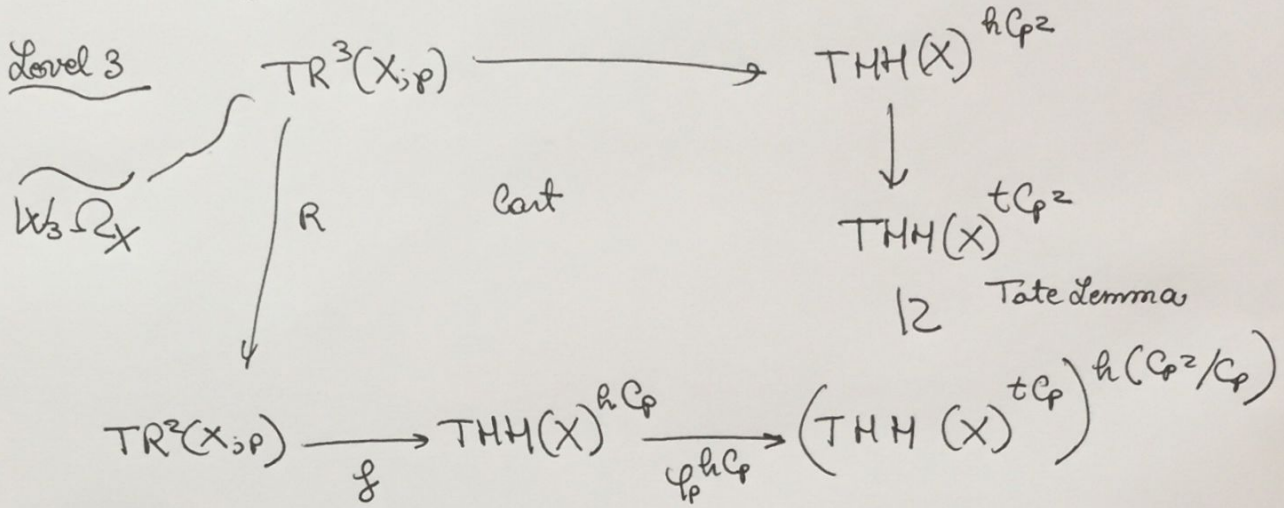 Level 3
TR³(X;p) → THH(X)^{hC_{p²}}
W₃Ω_X
R
Cart
THH(X)^{tC_{p²}}
≀ Tate Lemma
TR²(X;p) → THH(X)^{hC_p} → (THH(X)^{tC_p})^{h(C_{p²}/C_p)}
φ_p^{hC_p}